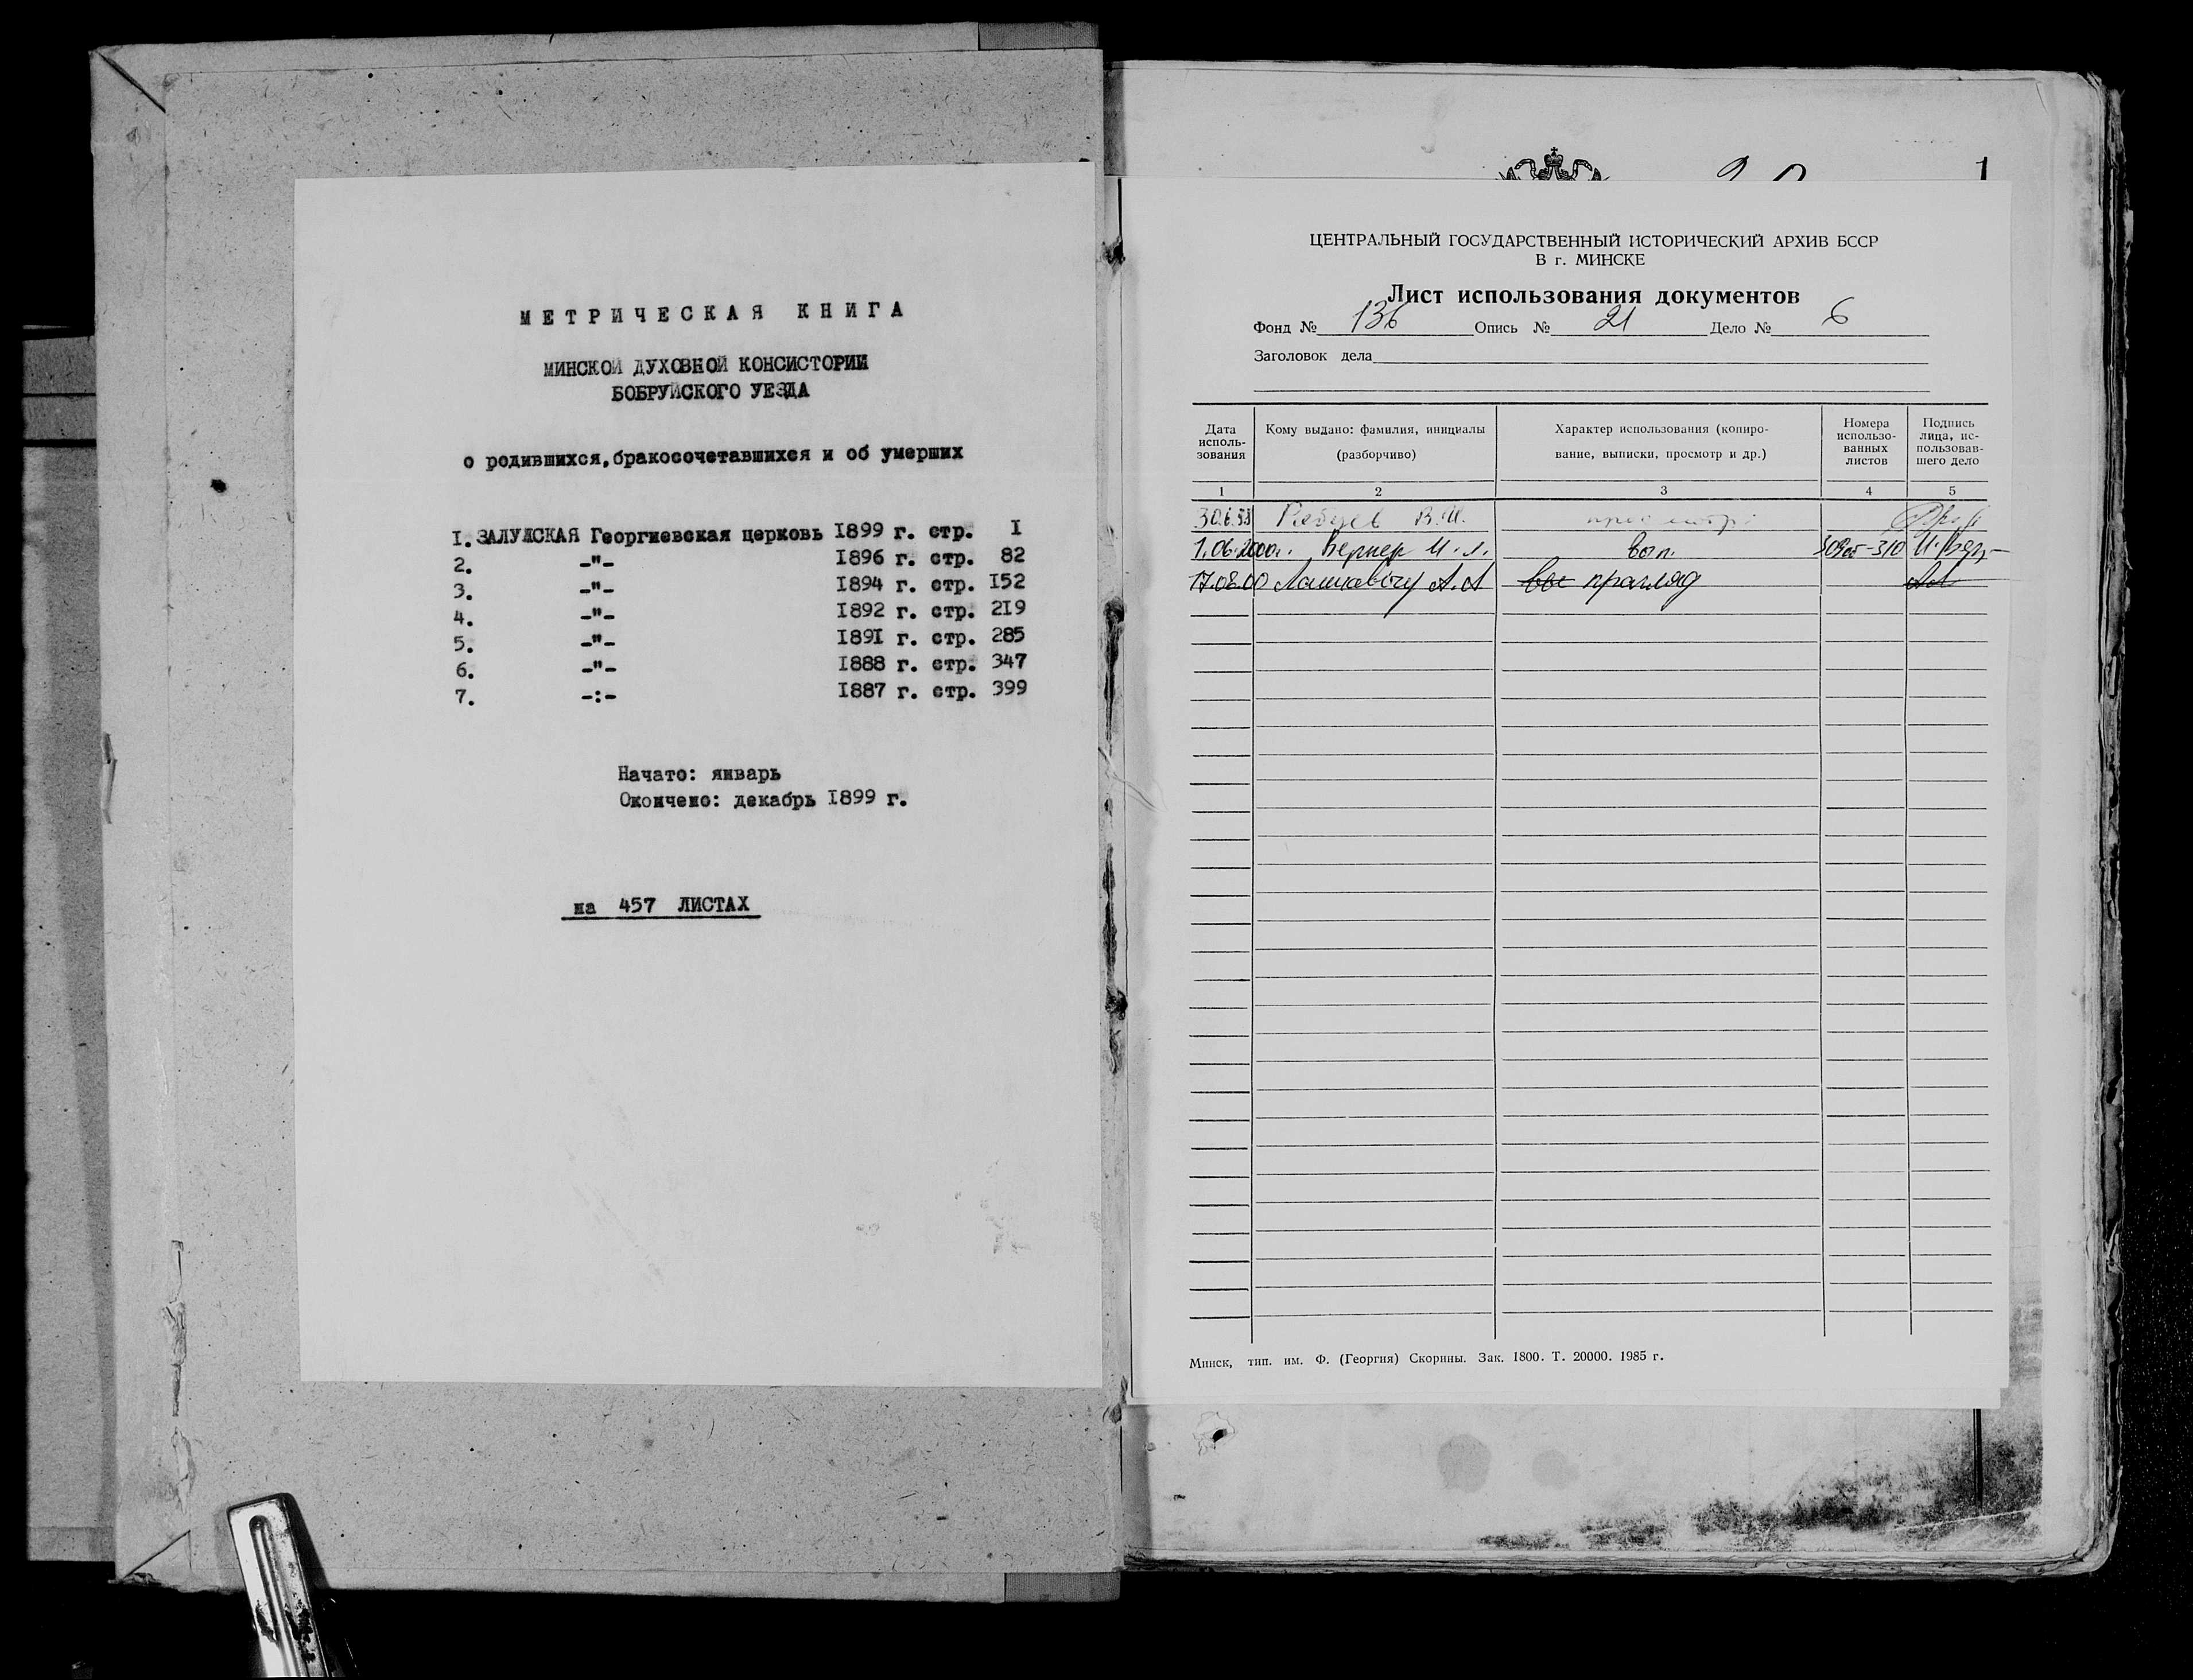 МЕТРИЧЕСКАЯ КНИГА
МИНСКОЙ ДУХОВНОЙ КОНСИСТОРИИ
БОБРУЙСКОГО УЕЗДА
о родившихся,бракосочетавшихся и об умерших
I. ЗАЛУЖСКАЯ Георгиевская церковь I899 г. стр. I
2. -"- I896 г. стр. 82
3. -"- I894 г. стр. I52
4. -"- I892 г. стр. 2I9
5. -"- I89I г. стр. 285
6. -"- I888 г. стр. 347
7. -:- I887 г. стр. 399
Начато: январь
Окончено: декабрь I899 г.
на 457 ЛИСТАХ
1
ЦЕНТРАЛЬНЫЙ ГОСУДАРСТВЕННЫЙ ИСТОРИЧЕСКИЙ АРХИВ БССР
В г. МИНСКЕ
Лист использования документов
Фонд № 136 Опись № 21 Дело № 6
Заголовок дела
Дата исполь-зования
Кому выдано: фамилия, инициалы
(разборчиво)
Характер использования (копиро-
вание, выписки, просмотр и др.)
Номера
использо-
ванных
листов
Подпись
лица, ис-
пользовав-
шего дело
1 2 3 4 5
30.6.93 В.И.
1.06.2000г. Вернер И.Л. вып.
17.08.00 Лашкевічу А.А прагляд
Минск, тип. им. Ф. (Георгия) Скорины. Зак. 1800. Т. 20000. 1985 г.